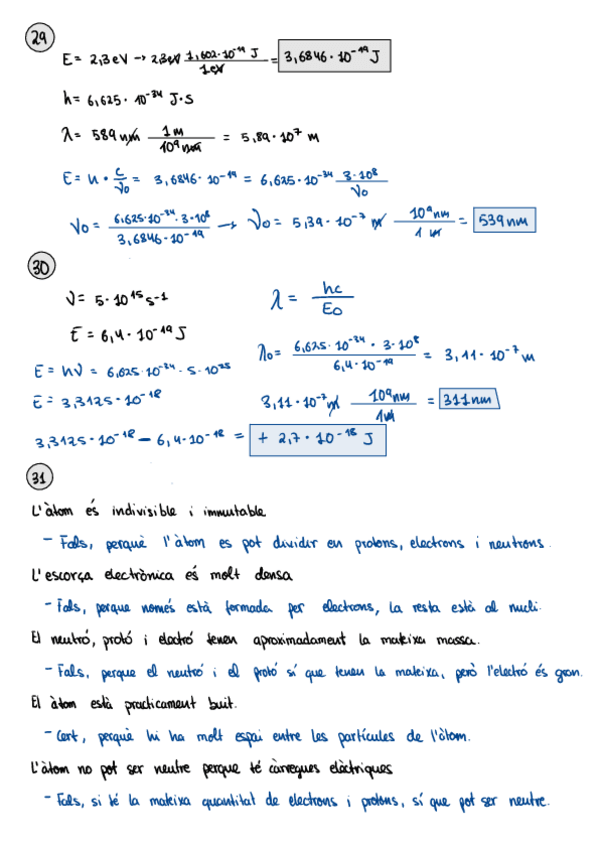 29
E = 2,3 eV → 2,3 eV 1,602·10⁻¹⁹ J / 1 eV = 3,6846·10⁻¹⁹ J
h = 6,625·10⁻³⁴ J·s
λ = 589 nm 1 m / 10⁹ nm = 5,89·10⁷ m
E = h · c / λ₀ = 3,6846·10⁻¹⁹ = 6,625·10⁻³⁴ 3·10⁸ / λ₀
λ₀ = 6,625·10⁻³⁴·3·10⁸ / 3,6846·10⁻¹⁹ → λ₀ = 5,39·10⁻⁷ m 10⁹ nm / 1 m = 539 nm
30
ν = 5·10¹⁵ s-1 λ = hc / E₀
E = 6,4·10⁻¹⁹ J
λ₀ = 6,625·10⁻³⁴ · 3·10⁸ / 6,4·10⁻¹⁹ = 3,11·10⁻⁷ m
E = hν = 6,625·10⁻³⁴·5·10¹⁵
E = 3,3125·10⁻¹⁸ 3,11·10⁻⁷ m 10⁹ nm / 1 m = 311 nm
3,3125·10⁻¹⁸ − 6,4·10⁻¹⁸ = + 2,7·10⁻¹⁸ J
31
L'àtom és indivisible i immutable
- Fals, perquè l'àtom es pot dividir en protons, electrons i neutrons.
L'escorça electrònica és molt densa
- Fals, perque només està formada per electrons, la resta està al nucli.
El neutró, protó i electró tenen aproximadament la mateixa massa.
- Fals, perque el neutró i el protó sí que tenen la mateixa, però l'electró és gran.
El àtom està practicament buit.
- Cert, perquè hi ha molt espai entre les partícules de l'àtom.
L'àtom no pot ser neutre perque té càrregues elèctriques
- Fals, si té la mateixa quantitat de electrons i protons, sí que pot ser neutre.